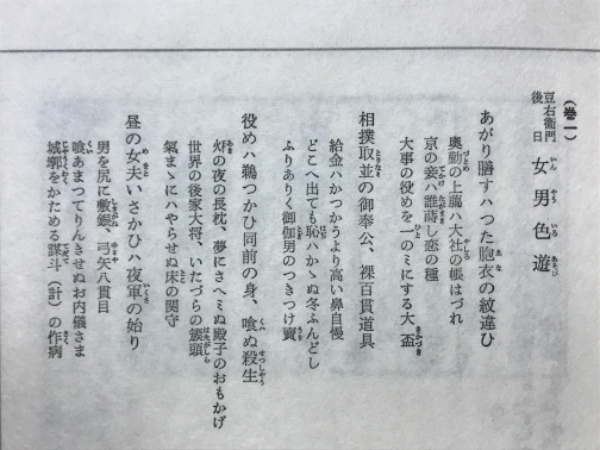 （巻一）
豆右衛門
後日
女男色遊
いんやういろあそび
あがり膳すハつた胞衣の紋違ひ
奥勤の上﨟ハ大社の帳はづれ
京の妾ハ誰蒔し恋の種
大事の役めを一のミにする大盃
相撲取並の御奉公、裸百貫道具
給金ハかつかうより高い鼻自慢
どこへ出ても恥ハかゝぬ冬ふんどし
ふりありく御伽男のつきつけ賣
役めハ鵜つかひ同前の身、喰ぬ殺生
灯の夜の長枕、夢にさへミぬ殿子のおもかげ
世界の後家大将、いたづらの籏頭
氣まゝにハやらせぬ床の関守
昼の女夫いさかひハ夜軍の始り
男を尻に敷銀、弓矢八貫目
喰あまつてりんきせぬお内儀さま
城郭をかためる謀斗（計）の作病